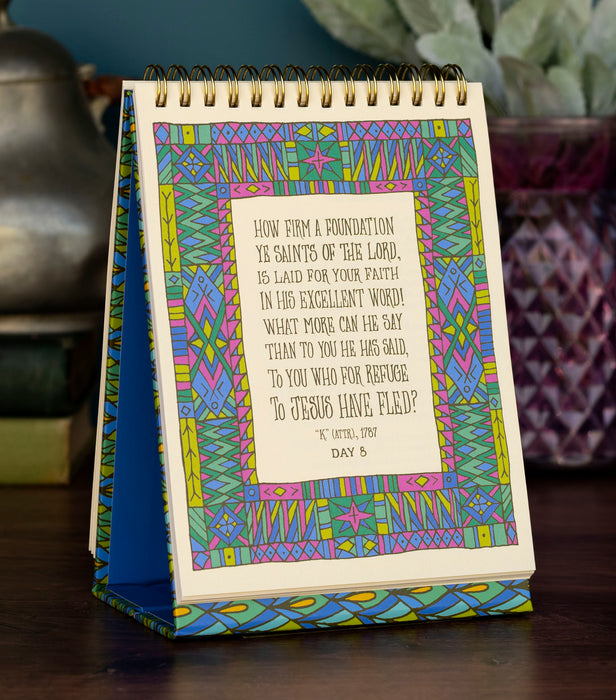 HOW FIRM A FOUNDATION
YE SAINTS OF THE LORD,
IS LAID FOR YOUR FAITH
IN HIS EXCELLENT WORD!
WHAT MORE CAN HE SAY
THAN TO YOU HE HAS SAID,
TO YOU WHO FOR REFUGE
TO JESUS HAVE FLED?
"K" (ATTR), 1787
DAY 8